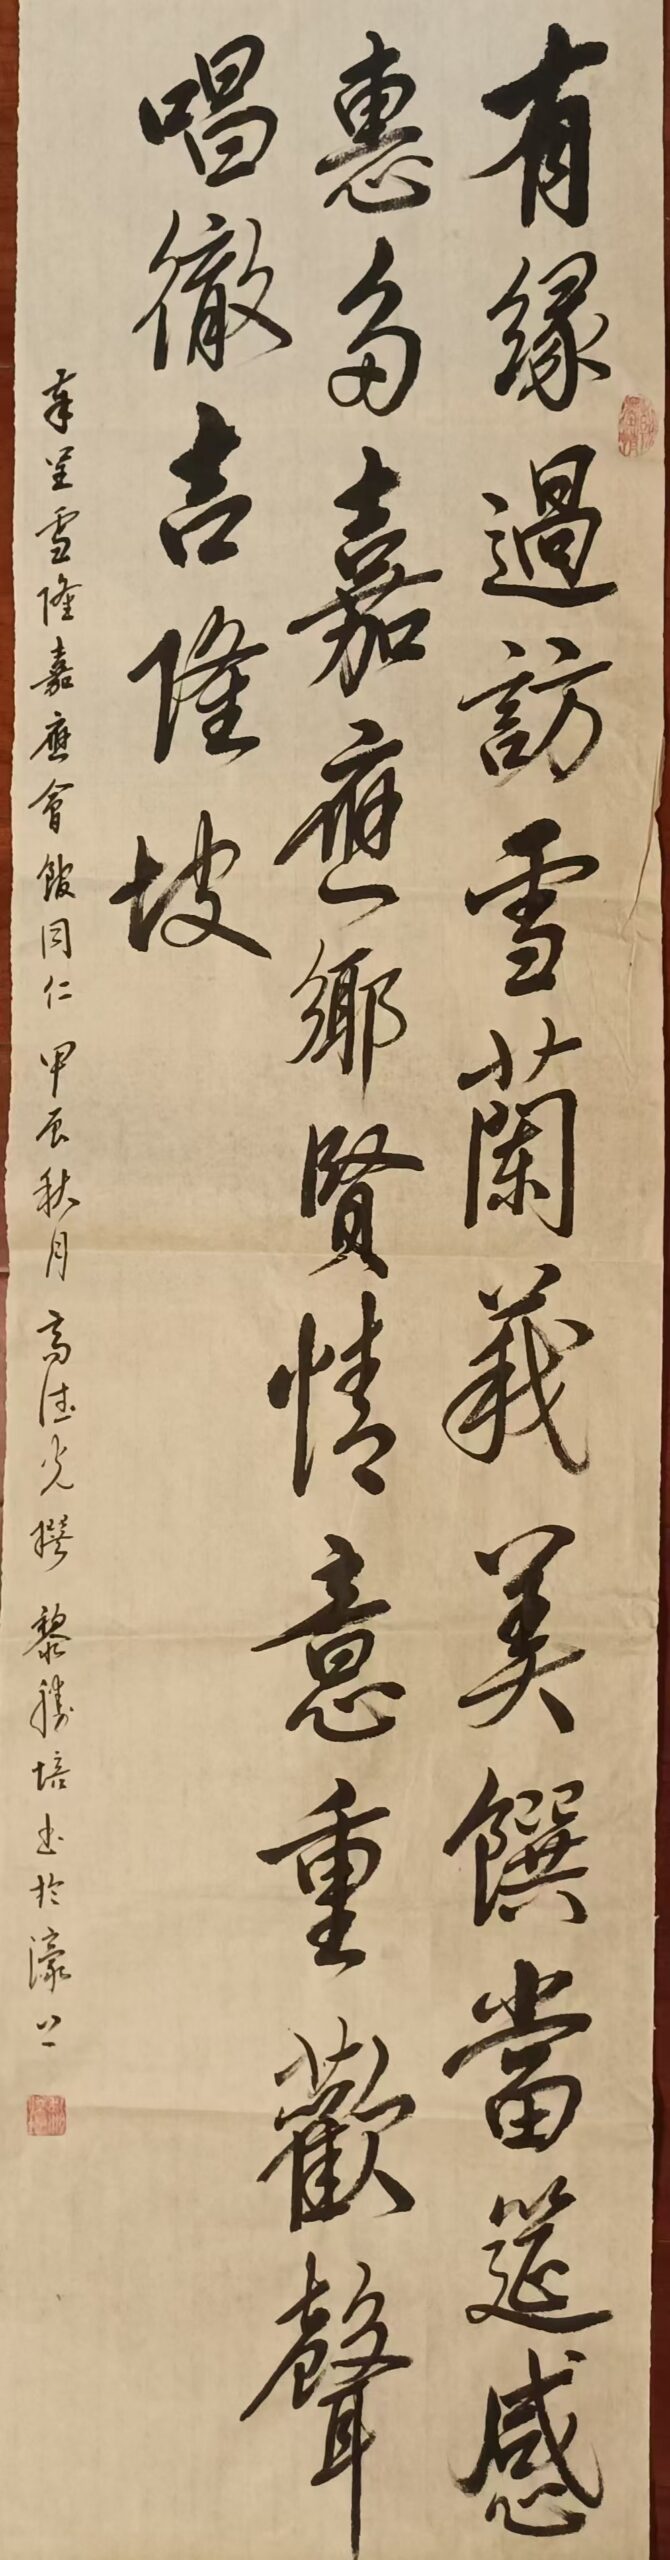 有緣過訪雪蘭莪美饌當筵感
惠多嘉應鄉賢情意重歡聲
唱徹吉隆坡
奉呈雪隆嘉應會館同仁 甲辰秋月 高德光撰 黎勝培書於濠上